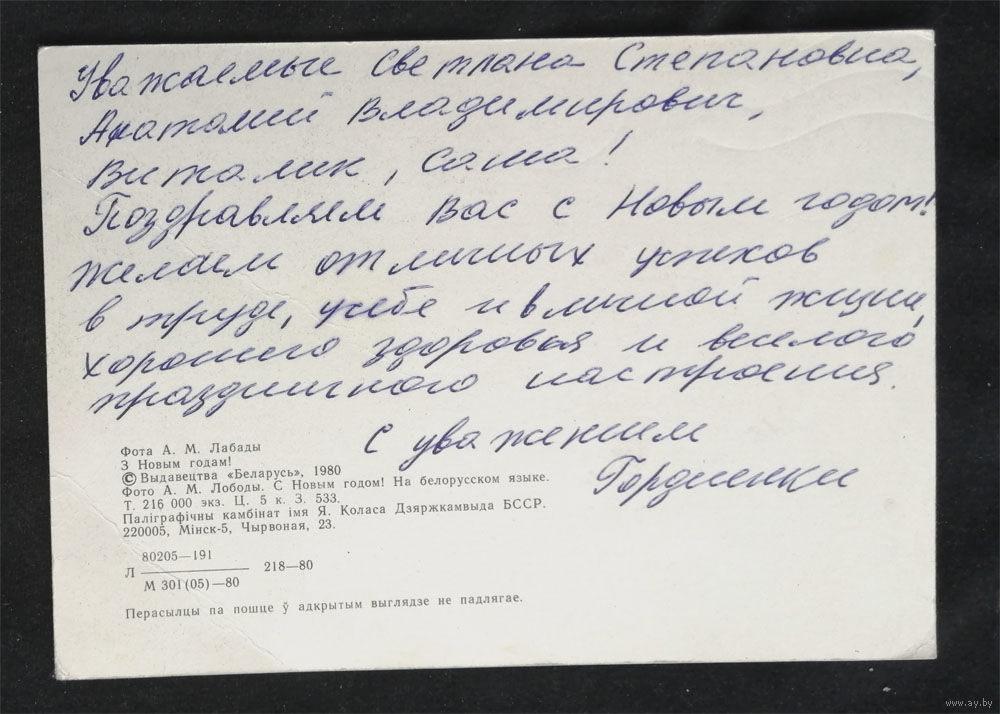 Уважаемые Светлана Степановна,
Анатолий Владимирович,
Виталик, Саша!
Поздравляем Вас с Новым годом!
Желаем отличных успехов
в труде, учебе и в личной жизни,
хорошего здоровья и веселого
праздничного настроения.
С уважением
Гордиенки
Фота А. М. Лабады
З Новым годам!
© Выдавецтва «Беларусь», 1980
Фото А. М. Лободы. С Новым годом! На белорусском языке.
Т. 216 000 экз. Ц. 5 к. З. 533.
Паліграфічны камбінат імя Я. Коласа Дзяржкамвыда БССР.
220005, Мінск-5, Чырвоная, 23.
80205—191
Л 218—80
М 301(05)—80
Перасылцы па пошце ў адкрытым выглядзе не падлягае.
www.ay.by